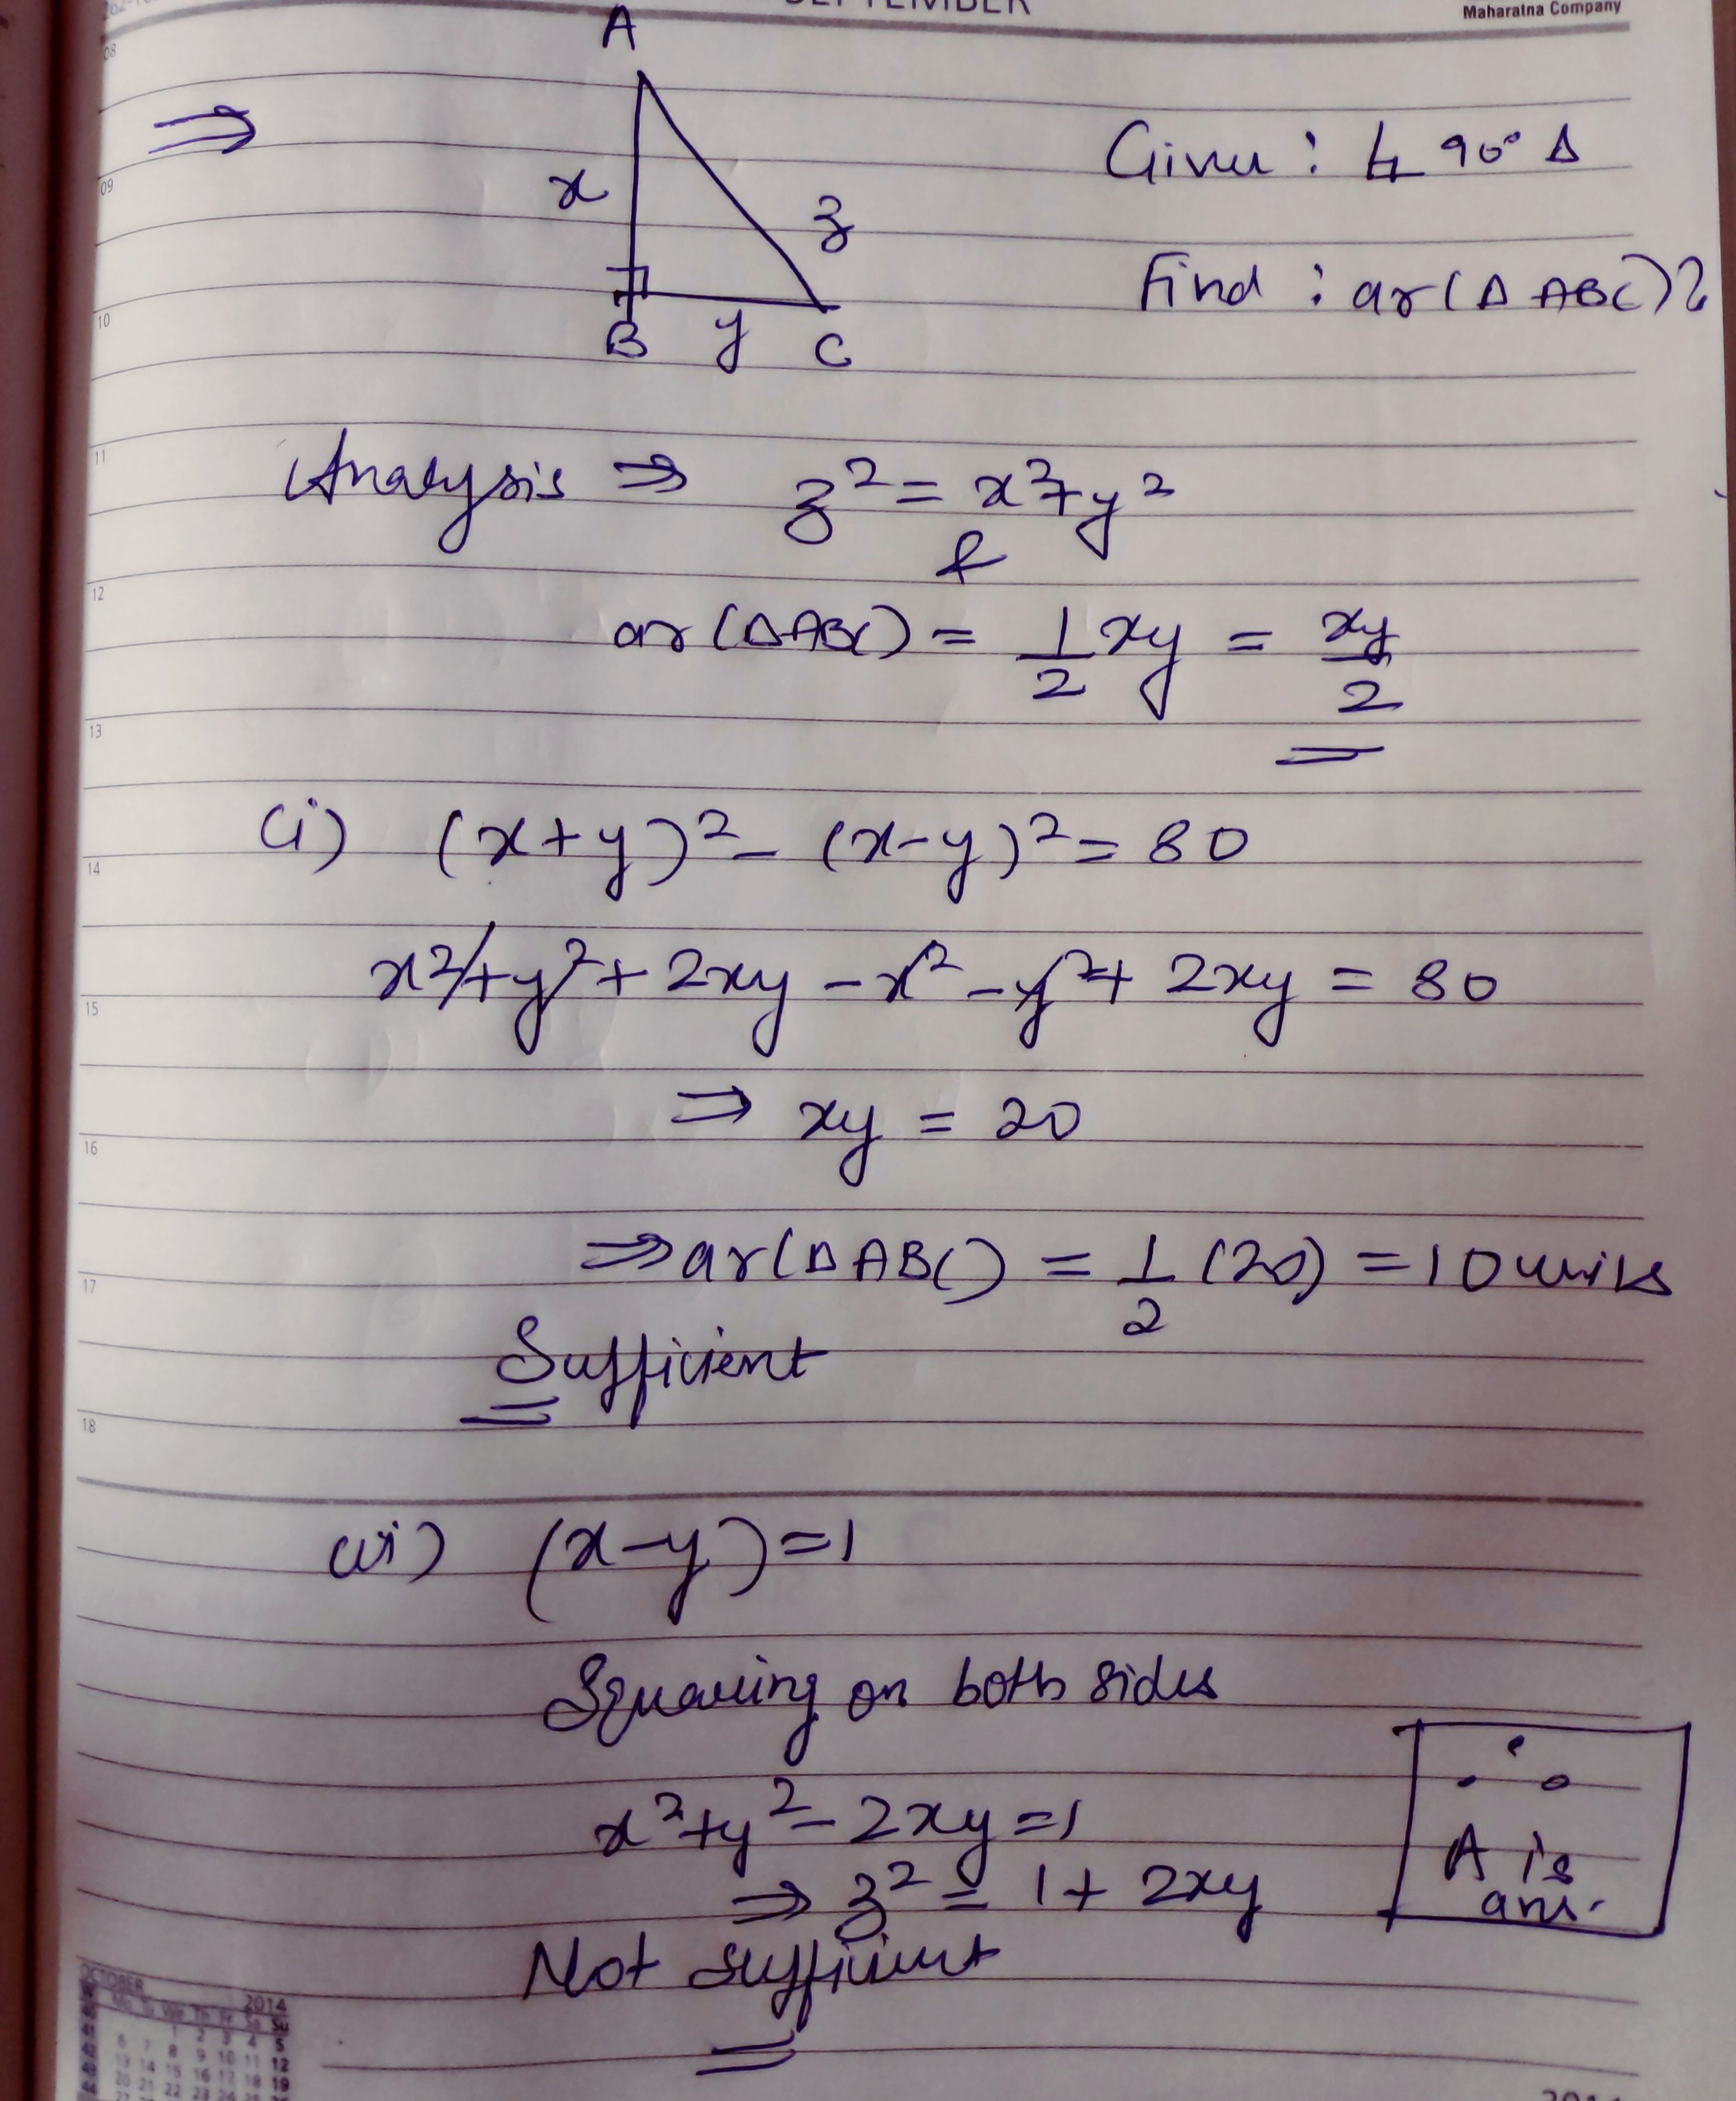 SEPTEMBER
Maharatna Company
A
⇒
Given : 90° Δ
x
z
Find : ar(Δ ABC)?
B y C
Analysis ⇒ z² = x²+y²
&
ar(ΔABC) = 1/2 xy = xy/2
(i) (x+y)² - (x-y)² = 80
x²+y²+2xy -x² -y²+ 2xy = 80
⇒ xy = 20
⇒ar(ΔABC) = 1/2 (20) = 10 units
Sufficient
(ii) (x-y)=1
Squaring on both sides
x²+y²-2xy=1
⇒ z² = 1+ 2xy
Not sufficient
∴
A is
ans.
08
09
10
11
12
13
14
15
16
17
18
OCTOBER 2014
Mo Tu We Th Fr Sa Su
1 2 3 4 5
6 7 8 9 10 11 12
13 14 15 16 17 18 19
20 21 22 23 24 25